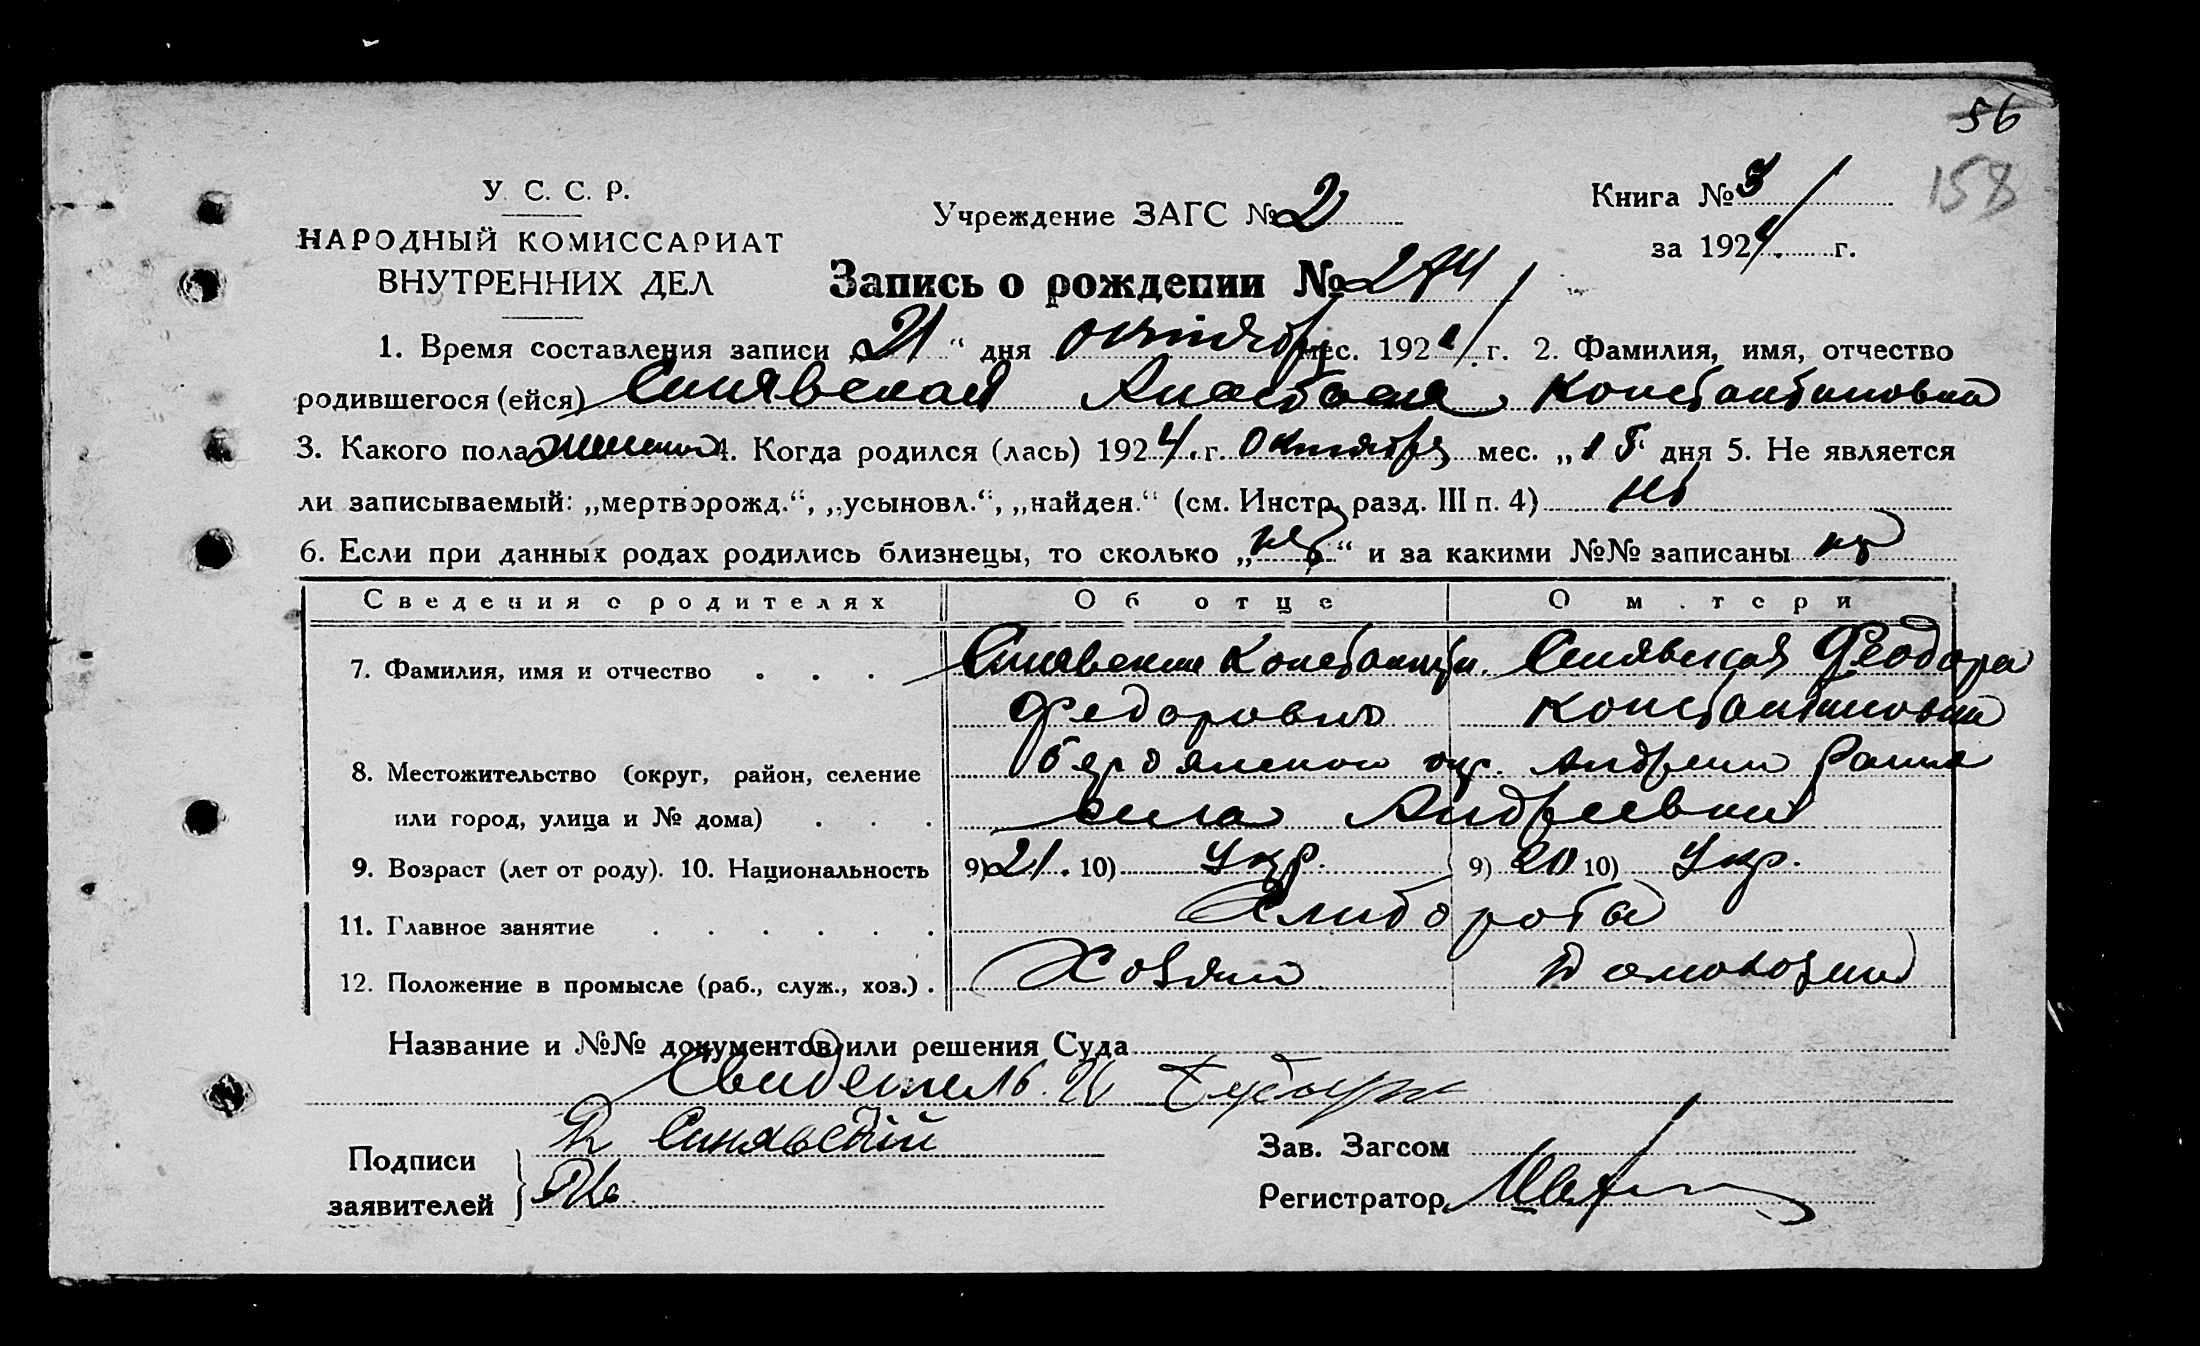 56
158
У. С. С. Р.
НАРОДНЫЙ КОМИССАРИАТ
ВНУТРЕННИХ ДЕЛ
Учреждение ЗАГС № 2
Книга № 3
за 1924 г.
Запись о рождении № 274
1. Время составления записи „21“ дня октября мес. 1924 г. 2. Фамилия, имя, отчество
родившегося (ейся) Синявская Анастасия Константиновна
3. Какого пола женск 4. Когда родился (лась) 1924 г. октября мес. „15“ дня 5. Не является
ли записываемый: „мертворожд.“, „усыновл.“, „найден.“ (см. Инстр. разд. III п. 4) нет
6. Если при данных родах родились близнецы, то сколько „нет“ и за какими №№ записаны нет
Сведения о родителях Об отце О матери
7. Фамилия, имя и отчество . . . Синявский Константин Синявская Феодора
Федорович Константиновна
8. Местожительство (округ, район, селение Бердянской окр. Андреев Района
или город, улица и № дома) . . . села Андреевки
9. Возраст (лет от роду). 10. Национальность 9) 21. 10) Укр. 9) 20 10) Укр.
11. Главное занятие . . . . . . Хлибороба
12. Положение в промысле (раб., служ., хоз.) . Хозяин Домохозяйка
Название и №№ документов или решения Суда
Свидетель
К Синявский
Подписи
заявителей
Зав. Загсом
Регистратор